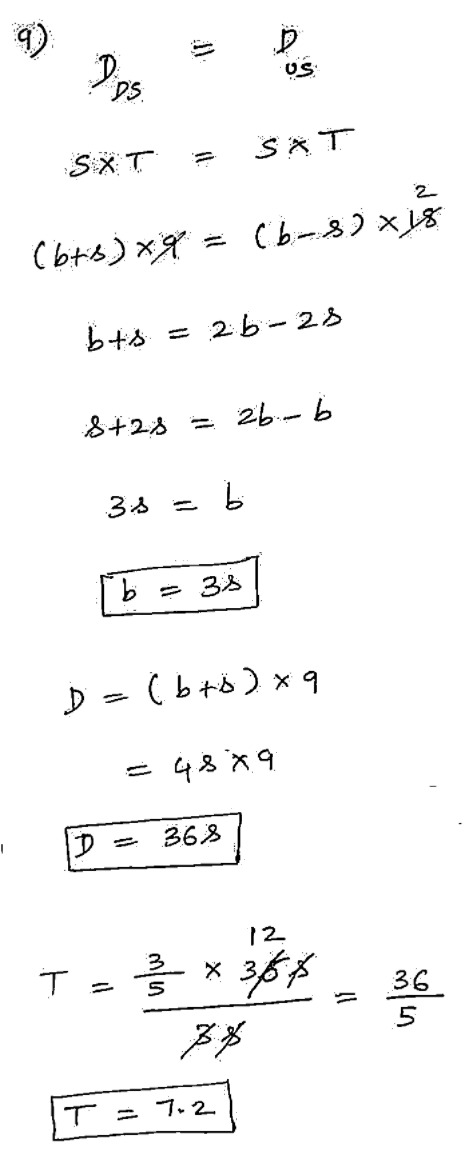 9) D_DS = D_US
S×T = S×T
(b+s)×9 = (b-s)×18 2
b+s = 2b-2s
s+2s = 2b-b
3s = b
b = 3s
D = (b+s)×9
= 4s×9
D = 36s
T = 3/5 × 36s 12 / 3s = 36/5
T = 7.2